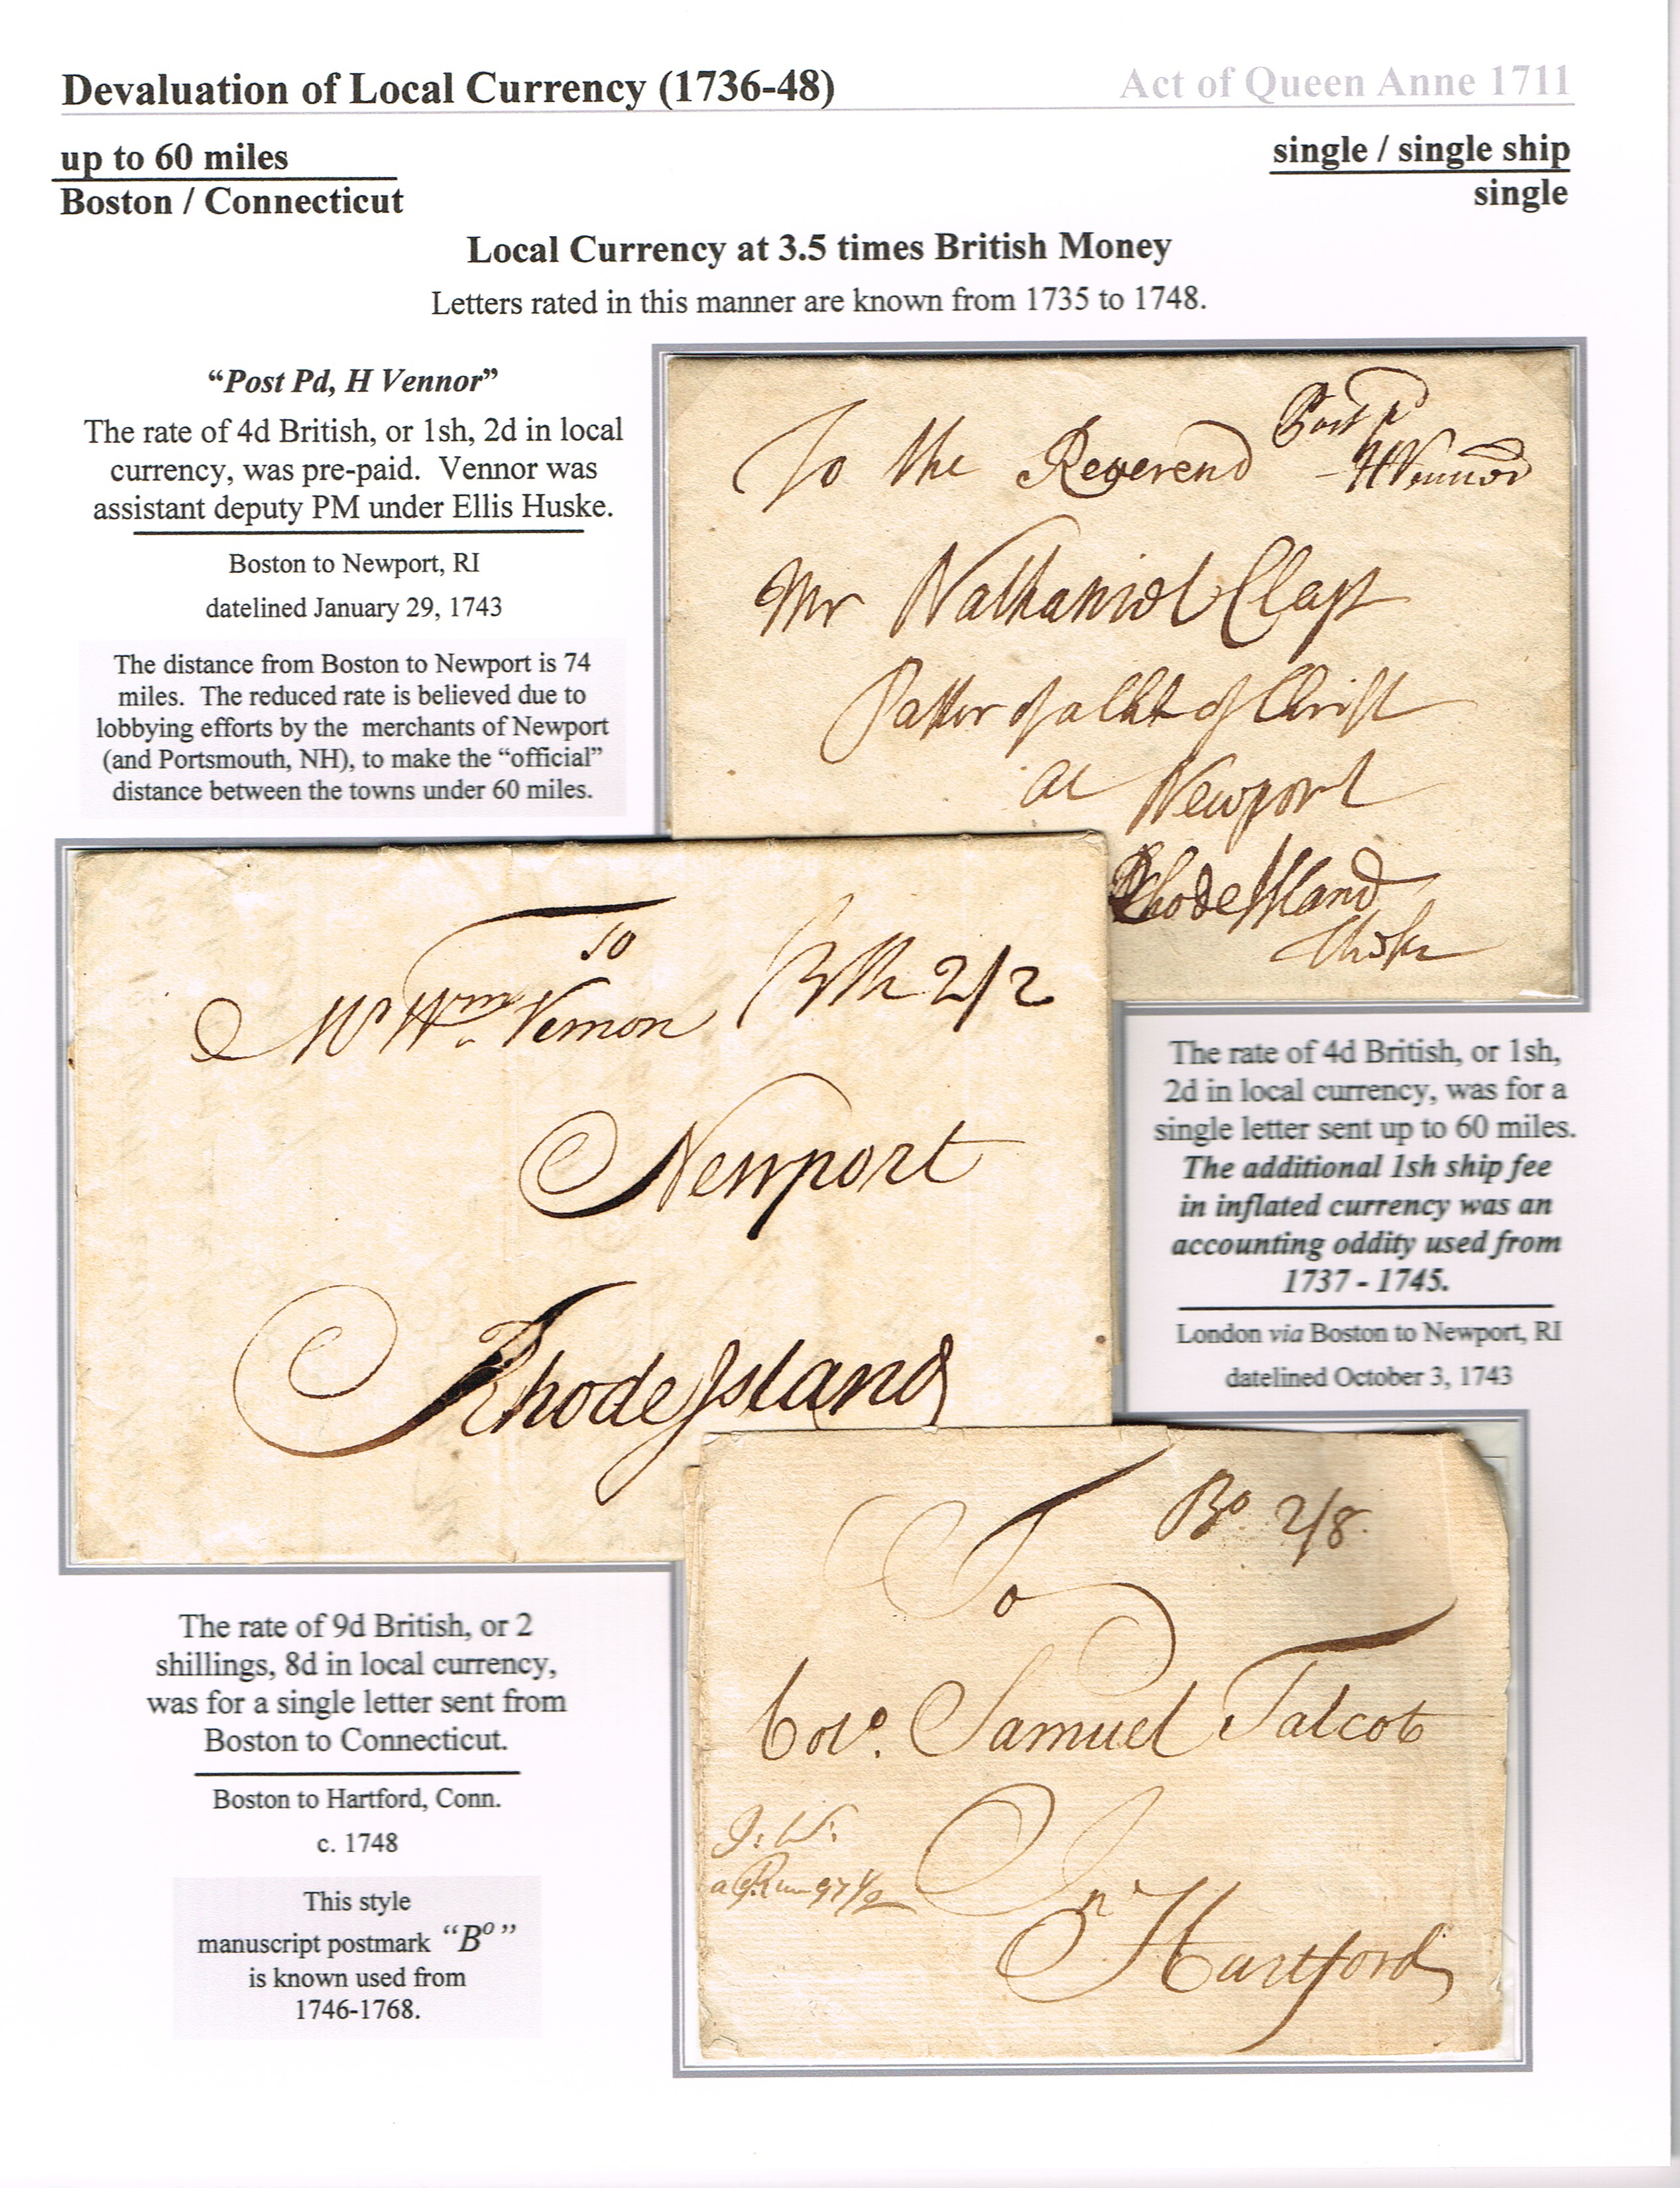 Devaluation of Local Currency (1736-48)
Act of Queen Anne 1711
up to 60 miles
Boston / Connecticut
single / single ship
single
Local Currency at 3.5 times British Money
Letters rated in this manner are known from 1735 to 1748.
“Post Pd, H Vennor”
The rate of 4d British, or 1sh, 2d in local
currency, was pre-paid. Vennor was
assistant deputy PM under Ellis Huske.
Boston to Newport, RI
datelined January 29, 1743
The distance from Boston to Newport is 74
miles. The reduced rate is believed due to
lobbying efforts by the merchants of Newport
(and Portsmouth, NH), to make the “official”
distance between the towns under 60 miles.
Post pd
HVennor
To the Reverend
Mr Nathaniel Clap
Paster of a Chh of Christ
at Newport
Rhode Island
To
Mr Wm Vernon
2/2
Newport
Rhode Island
The rate of 4d British, or 1sh,
2d in local currency, was for a
single letter sent up to 60 miles.
The additional 1sh ship fee
in inflated currency was an
accounting oddity used from
1737 - 1745.
London via Boston to Newport, RI
datelined October 3, 1743
Bo 2/8
To
Colo. Samuel Talcot
J: W:
In
Hartford
The rate of 9d British, or 2
shillings, 8d in local currency,
was for a single letter sent from
Boston to Connecticut.
Boston to Hartford, Conn.
c. 1748
This style
manuscript postmark “Bo”
is known used from
1746-1768.